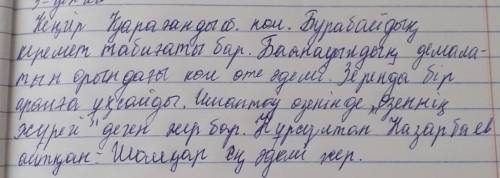 Кеңгір Қарағанды об. көл. Бурабайдың
керемет табиғаты бар. Баянауылдың демала-
тын орындағы көл өте әдемі. Зеренда бір
аралға ұқсайды. Имантау өзенінде „өзеннің
жүрегі" деген жер бар. Нурсултан Назарбаев
айтқан - Шалқар ең әдемі жер.